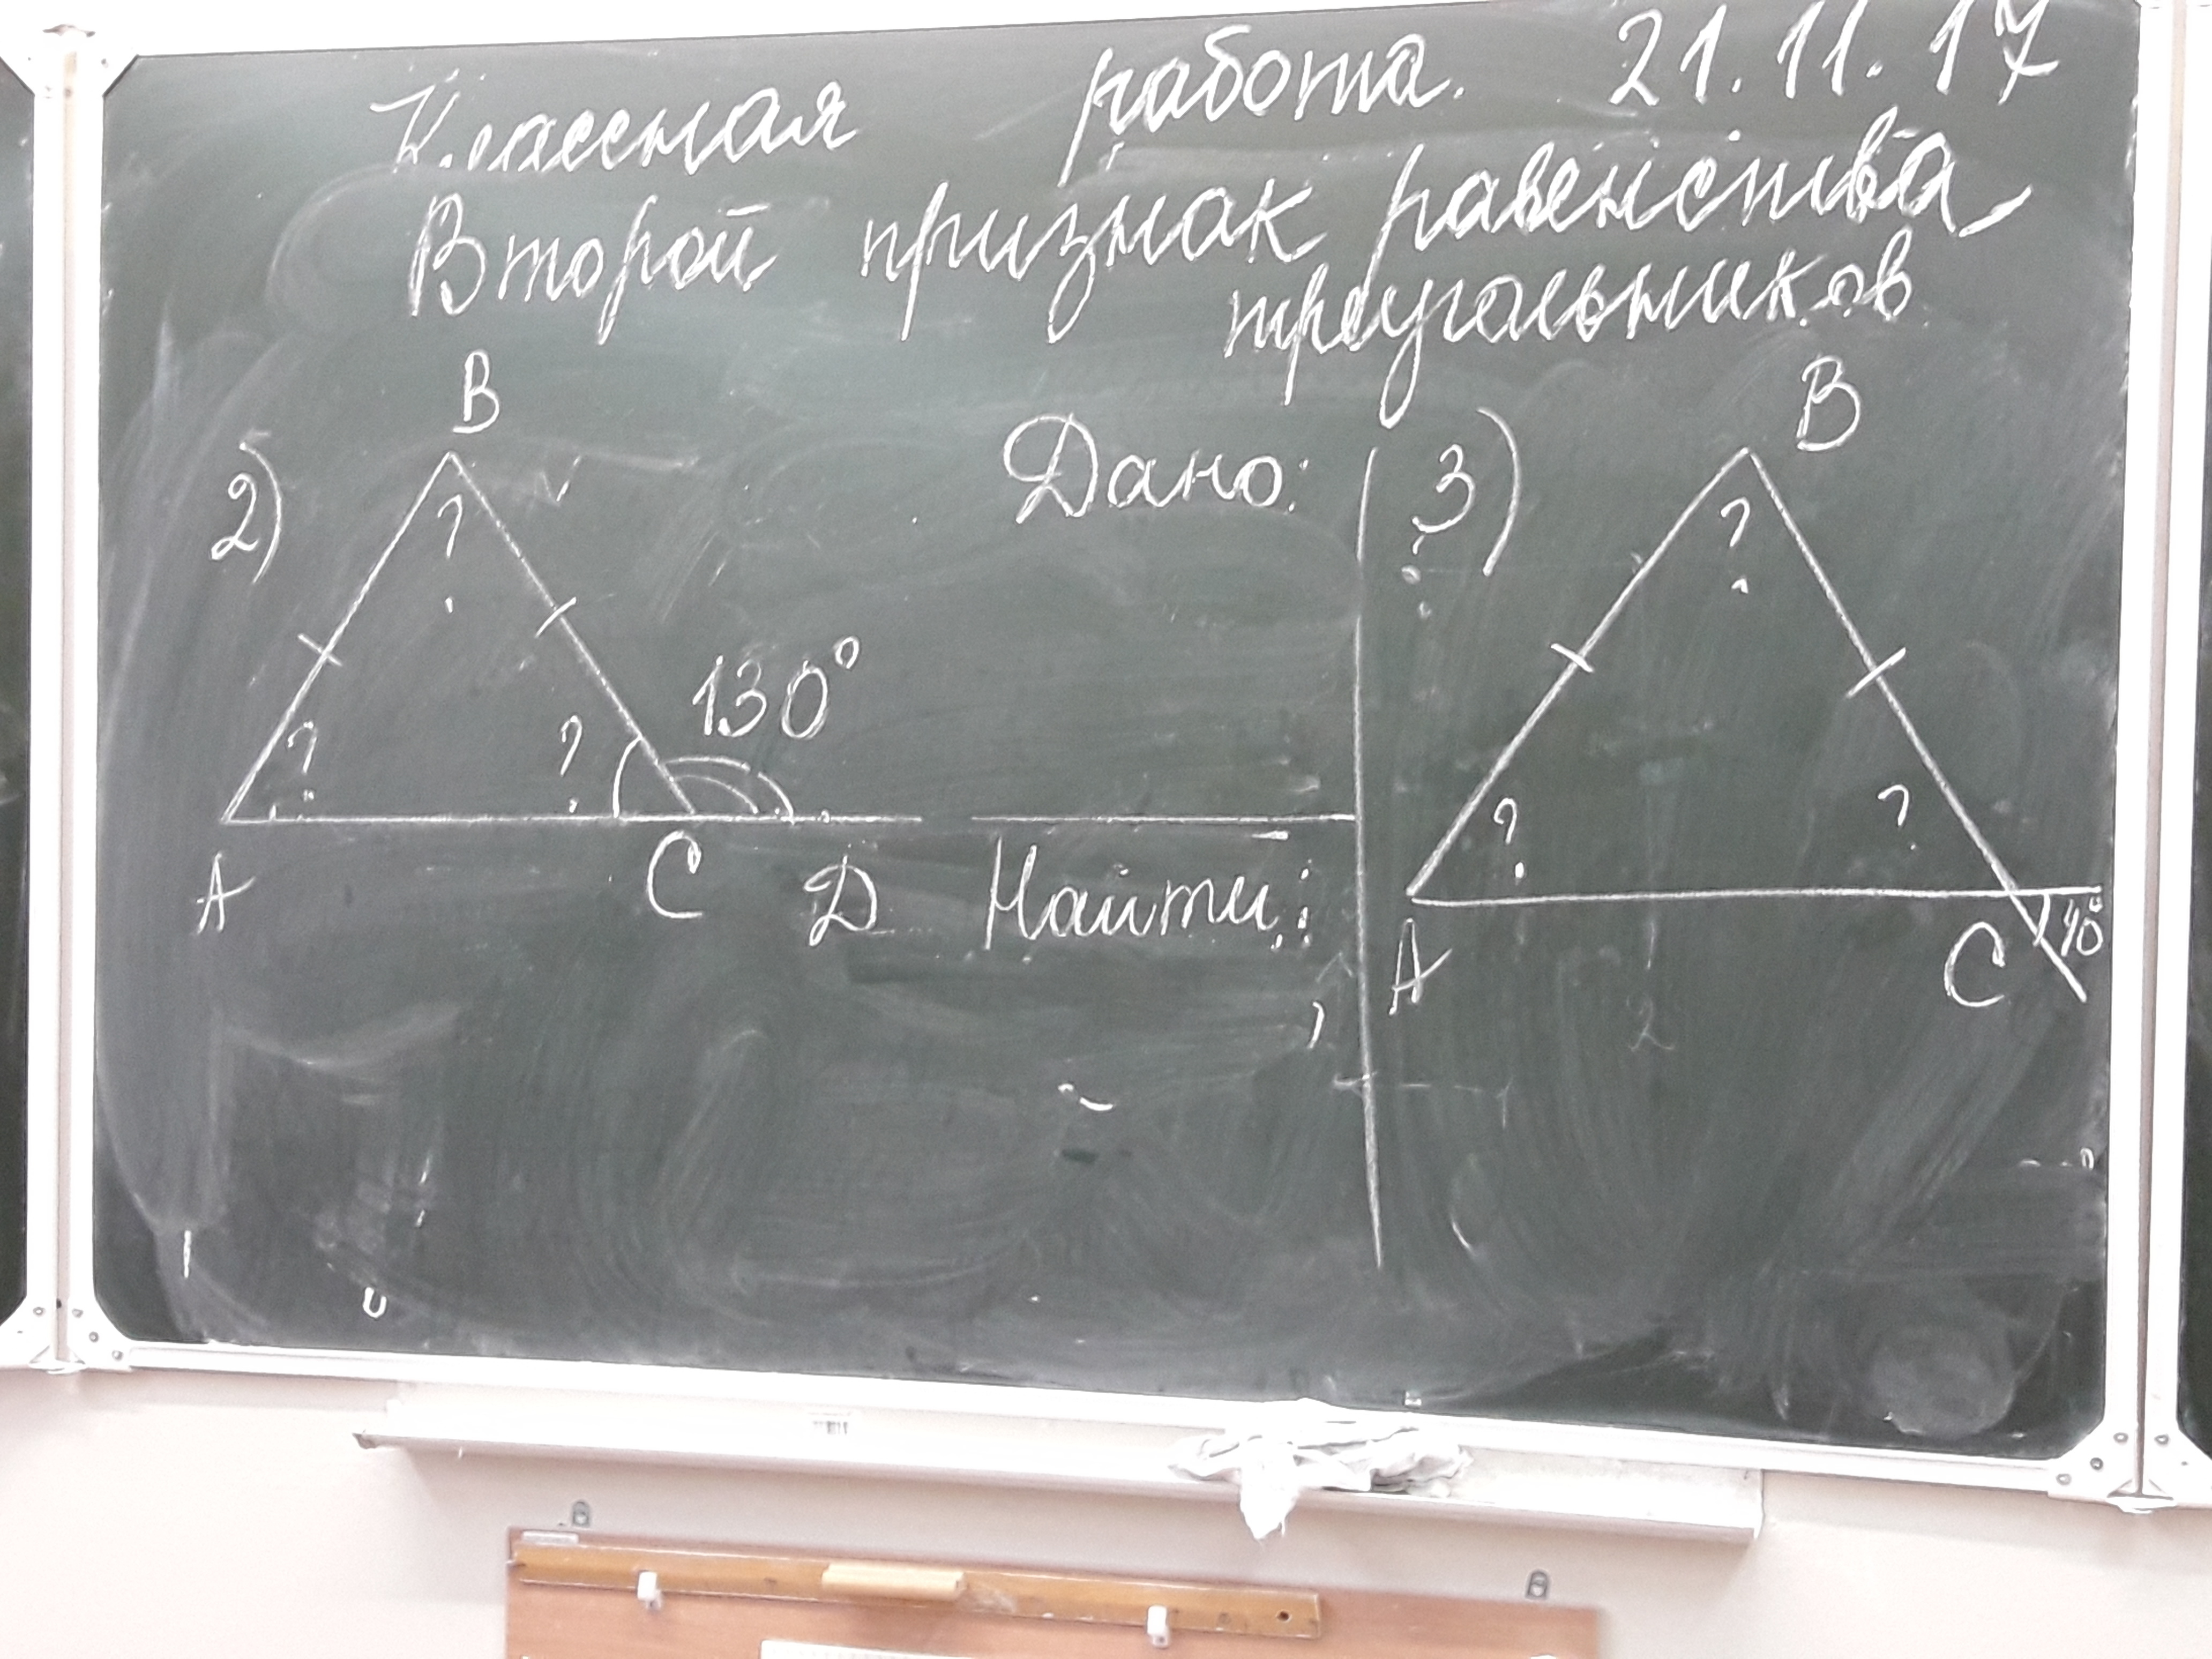 Классная работа. 21.11.17
Второй признак равенства
треугольников
2)
B
?
?
?
130°
A
C
D
Дано:
Найти:
3)
B
?
?
?
A
C
40°